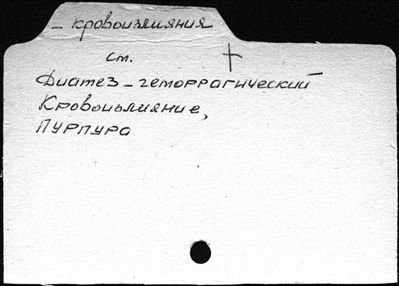 - кровоизлияния
см. +
Диатез - геморрагический
Кровоизлияние,
Пурпура